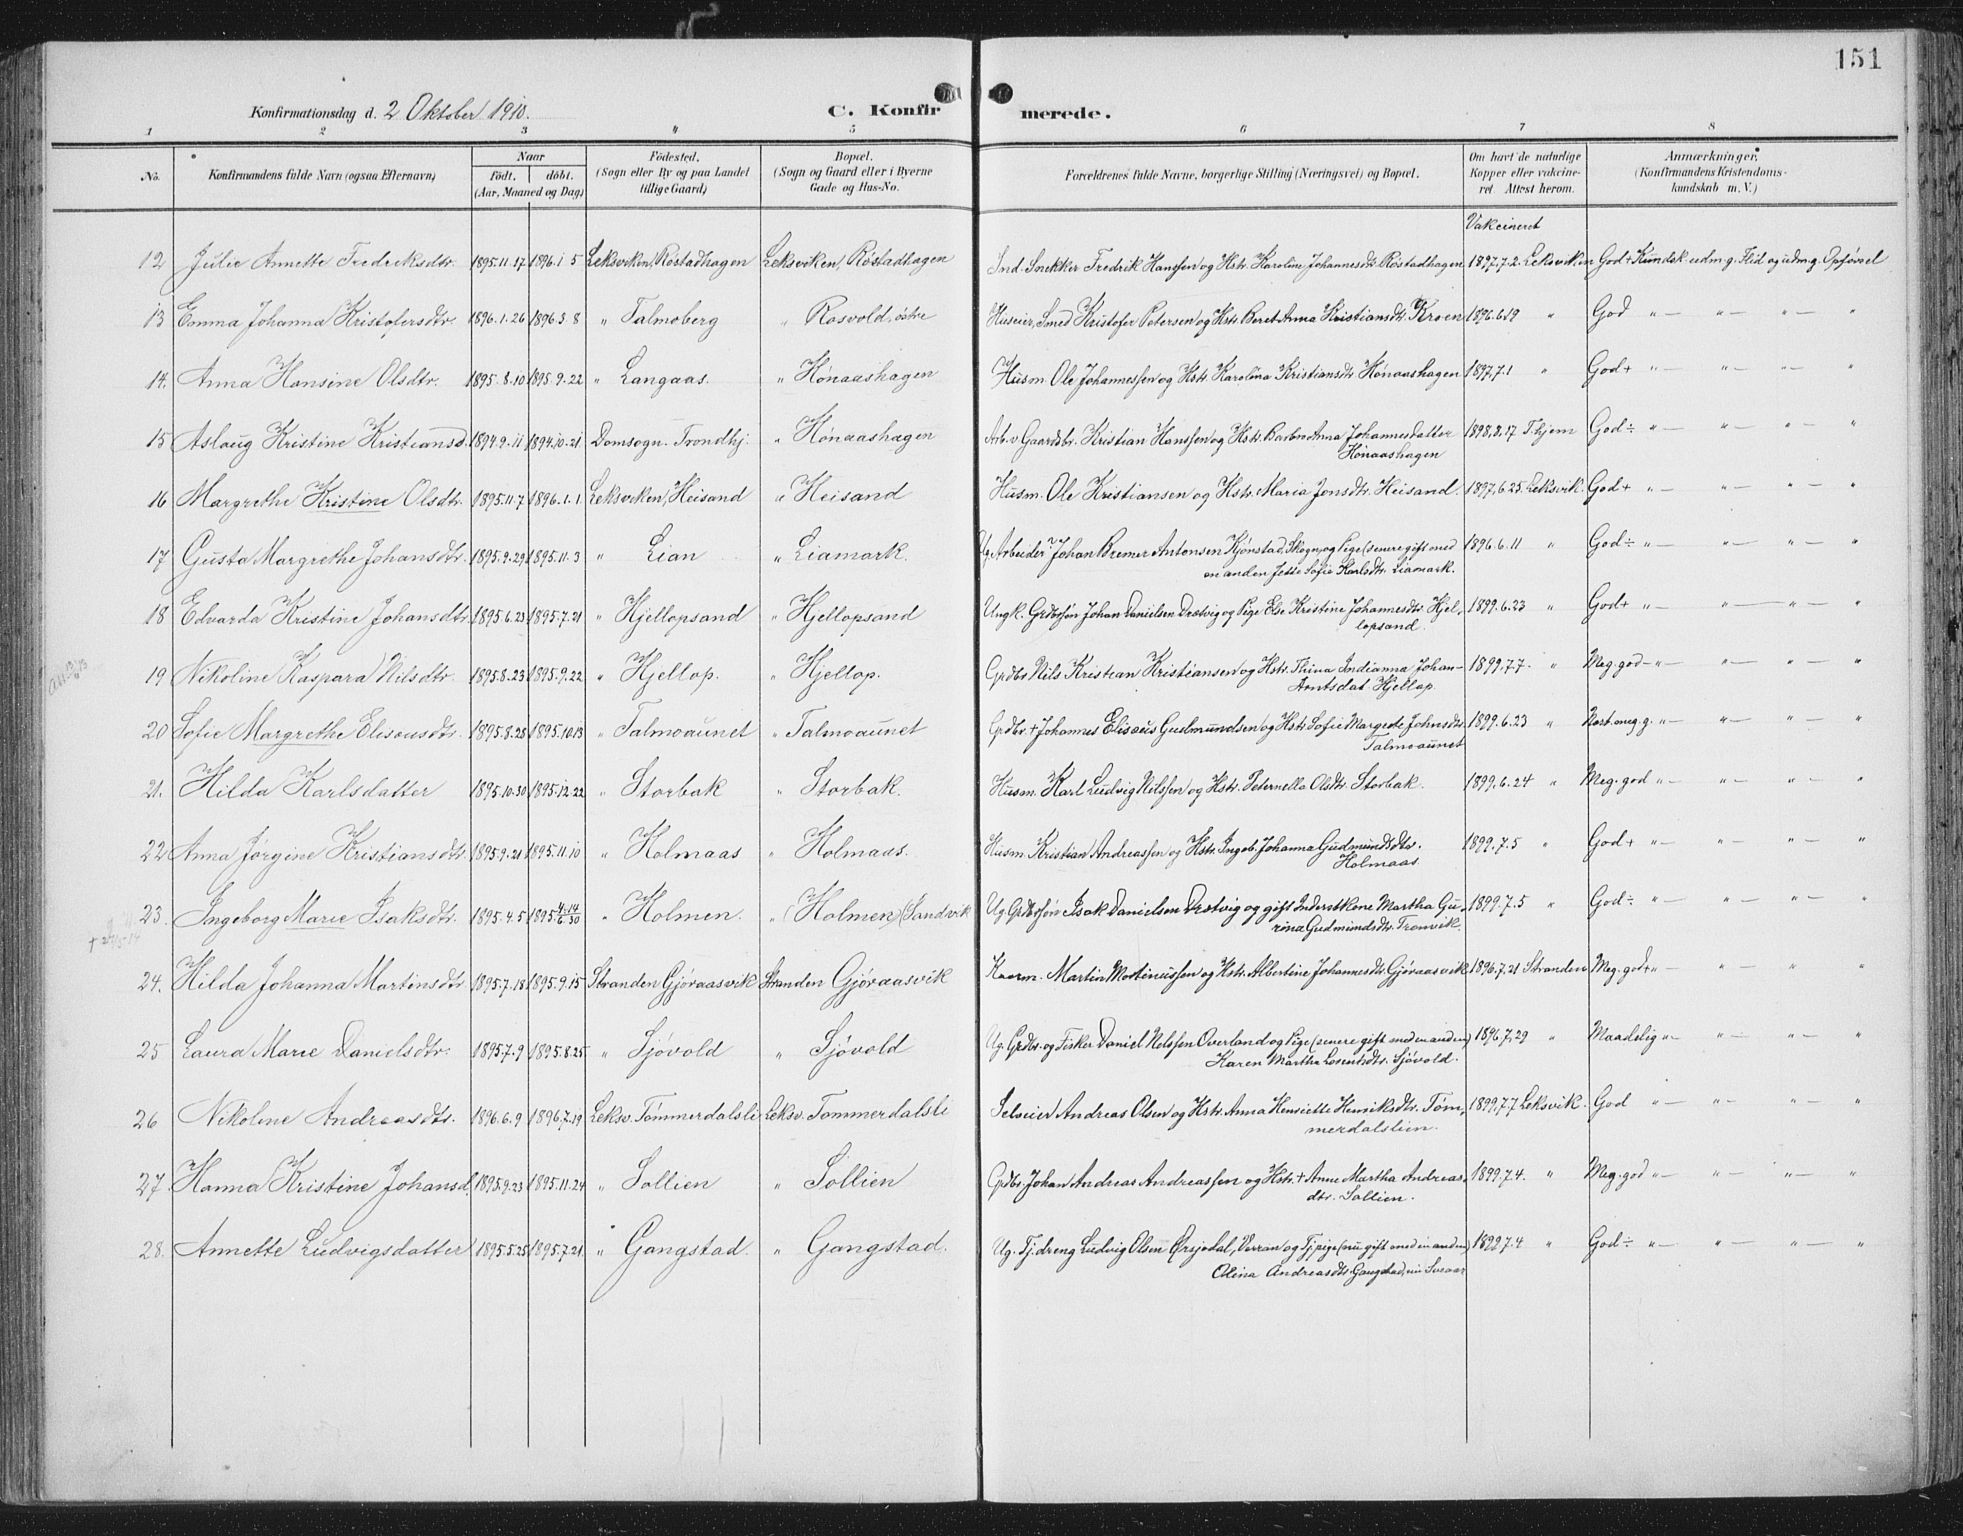 151
Konfirmationsdag d. 2 Oktober 1910.
C. Konfirmerede.
1 2 3 4 5 6 7 8
No. Konfirmandens fulde Navn (ogsaa Efternavn) Naar født. døbt. (Aar, Maaned og Dag) Fødested. (Sogn eller By og paa Landet tillige Gaard) Bopæl. (Sogn og Gaard eller i Byerne Gade og Hus-No. Forældrenes fulde Navne, borgerlige Stilling (Næringsvei) og Bopæl. Om havt de naturlige Kopper eller vakcineret. Attest herom. Anmærkninger. (Konfirmandens Kristendomskundskab m. V.)
Vakcineret
12 Julie Annette Fredriksdtr. 1895.11.17 1896.1.5 Leksviken, Røstadhagen Leksviken, Røstadhagen Ind. Snekker Fredrik Hanssen og Hstr. Karoline Johannesdtr. Røstadhagen 1897.7.2. Leksviken God + Kundsk. udm. g. Flid og udm. g. Opførsel
13 Emma Johanna Kristofersdtr. 1896.1.26 1896.3.8 " Talmoberg " Rosvold, østre Huseier, Smed Kristofer Petersen og Hstr. Beret Anna Kristiansdtr. Kroen 1896.6.19 " God " — " — " — "
14. Anna Hansine Olsdtr. 1895.8.10 1895.9.22 " Langaas. " Hønaashagen Husm. Ole Johannessen og Hstr. Karolina Kristiansdtr. Hønaashagen 1897.7.1 " God + " — " — " — "
15 Aslaug Kristine Kristiansd. 1894.9.11 1894.10.21 Domsogn. Trondhj. " Hønaashagen Arb. v. Gaardsbr. Kristian Hanssen og Hstr. Barbro Anna Johannesdatter 1898.8.17 T.hjem God ÷ " — " — " — "
Hønaashagen
16 Margrethe Kristine Olsdtr. 1895.11.7 1896.1.1 Leksviken, Heisand " Heisand Husm. Ole Kristiansen og Hstr. Maria Jonsdtr. Heisand. 1897.6.25. Leksvik. God + " — " — " — "
17 Gusta Margrethe Johansdtr. 1895.9.29 1895.11.3 " Lian " Liamark. Ug. Arbeider Johan Bremer Antonsen Kjønstad, Skogn, og Pige (senere gift med 1896.6.11 " God ÷ " — " — " — "
en anden Sofie Karlsdtr. Liamark.
18 Edvarda Kristine Johansdtr. 1895.6.23 1895.7.21 " Hjellopsand " Hjellopsand Ungk. Grdbrsøn Johan Danielsen Drætvig og Pige Else Kristine Johannesdtr. Hjel- 1899.6.23 " God + " — " — "
lopsand.
19 Nikoline Kaspara Nilsdtr. 1895.8.23 1895.9.22 " Hjellop. " Hjellop. Grdbr. Nils Kristian Kristiansen og Hstr. Thina Indianna Johan- 1899.7.7. " Meg. god - " — " — " — "
Arntsdat. Hjellop.
20 Sofie Margrethe Eliseusdtr. 1895.8.28 1895.10.13 " Talmoaunet " Talmoaunet Grdbr. + Johannes Elisæus Gudmundsen og Hstr. Sofie Margrete Johnsdtr. 1899.6.23 " Næst. meg. g. " — " — " — "
Talmoaunet
21. Hilda Karlsdatter 1895.10.30 1895.12.22 " Storbak " Storbak. Husm. Karl Ludvig Nilssen og Hstr. Peternella Olsdtr. Storbak. 1899.6.24 " Meg. god " — " — " — "
22 Anna Jørgine Kristiansdtr. 1895.9.21 1895.11.10 " Holmaas " Holmaas. Husm. Kristian Andreassen og Hstr. Ingeb. Johanna Gudmundsdtr. 1899.7.5 " God + " — " — " — "
Holmaas.
23. Ingeborg Marie Isaksdtr. 1895.4.5 1895.4.14/6.30 " Holmen. " Holmen, (Sandvik Ug. Grdbrsøn Isak Danielsen Drætvig og gift Inderstkone Martha Gu- 1899.7.5 " God ÷ " — " — " — "
rina Gudmundsdtr. Tronvik.
24. Hilda Johanna Martinsdtr. 1895.7.18 1895.9.15 Stranden Gjøraasvik Stranden Gjøraasvik Kaarm. Martin Martinussen og Hstr. Albertine Johannesdtr. Gjøraasvik 1896.7.21 Stranden Meg. god + " — " — " — "
25 Laura Marie Danielsdtr. 1895.7.9 1895.8.25 " Sjøvold " Sjøvold Ug. Grdbr. og Fisker Daniel Nilssen Overland og Pige (senere gift med en anden) 1896.7.29 " Maadelig " — " — " — "
Karen Martha Lorentsdtr. Sjøvold.
26 Nikoline Andreasdtr. 1896.6.9 1896.7.19 Leksv. Tømmerdalsli Leksv. Tømmerdalsli Selveier Andreas Olsen og Hstr. Anna Henriette Henriksdtr. Tøm- 1899.7.7 Leksvik. God " — " — " — "
merdalslien.
27. Hanna Kristine Johansd. 1895.9.23 1895.11.24 " Sollien " Sollien Grdbr. Johan Andreas Andreassen og Hstr. + Anne Martha Andreas- 1899.7.4. " Meg. god " — " — " — "
dtr. Sollien.
28. Annette Ludvigsdatter 1895.5.25 1895.7.21 " Gangstad. " Gangstad. Ug. Tj.dreng Ludvig Olsen Ørsjødal, Verran og Tj.pige (nu gift med en anden) 1899.7.4 " God ÷ " — " — " — "
Olina Andreasdtr. Gangstad, nu Svaar